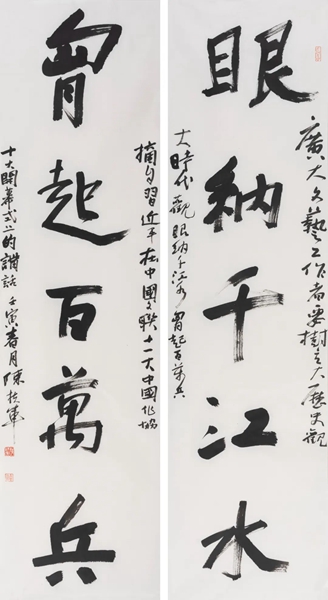 眼納千江水
廣大文藝工作者要樹立大歷史觀
大時代觀眼納千江水胷起百萬兵
胷起百萬兵
摘自習近平在中國文聯十一大中國作協
十大開幕式上的講話壬寅春月陳